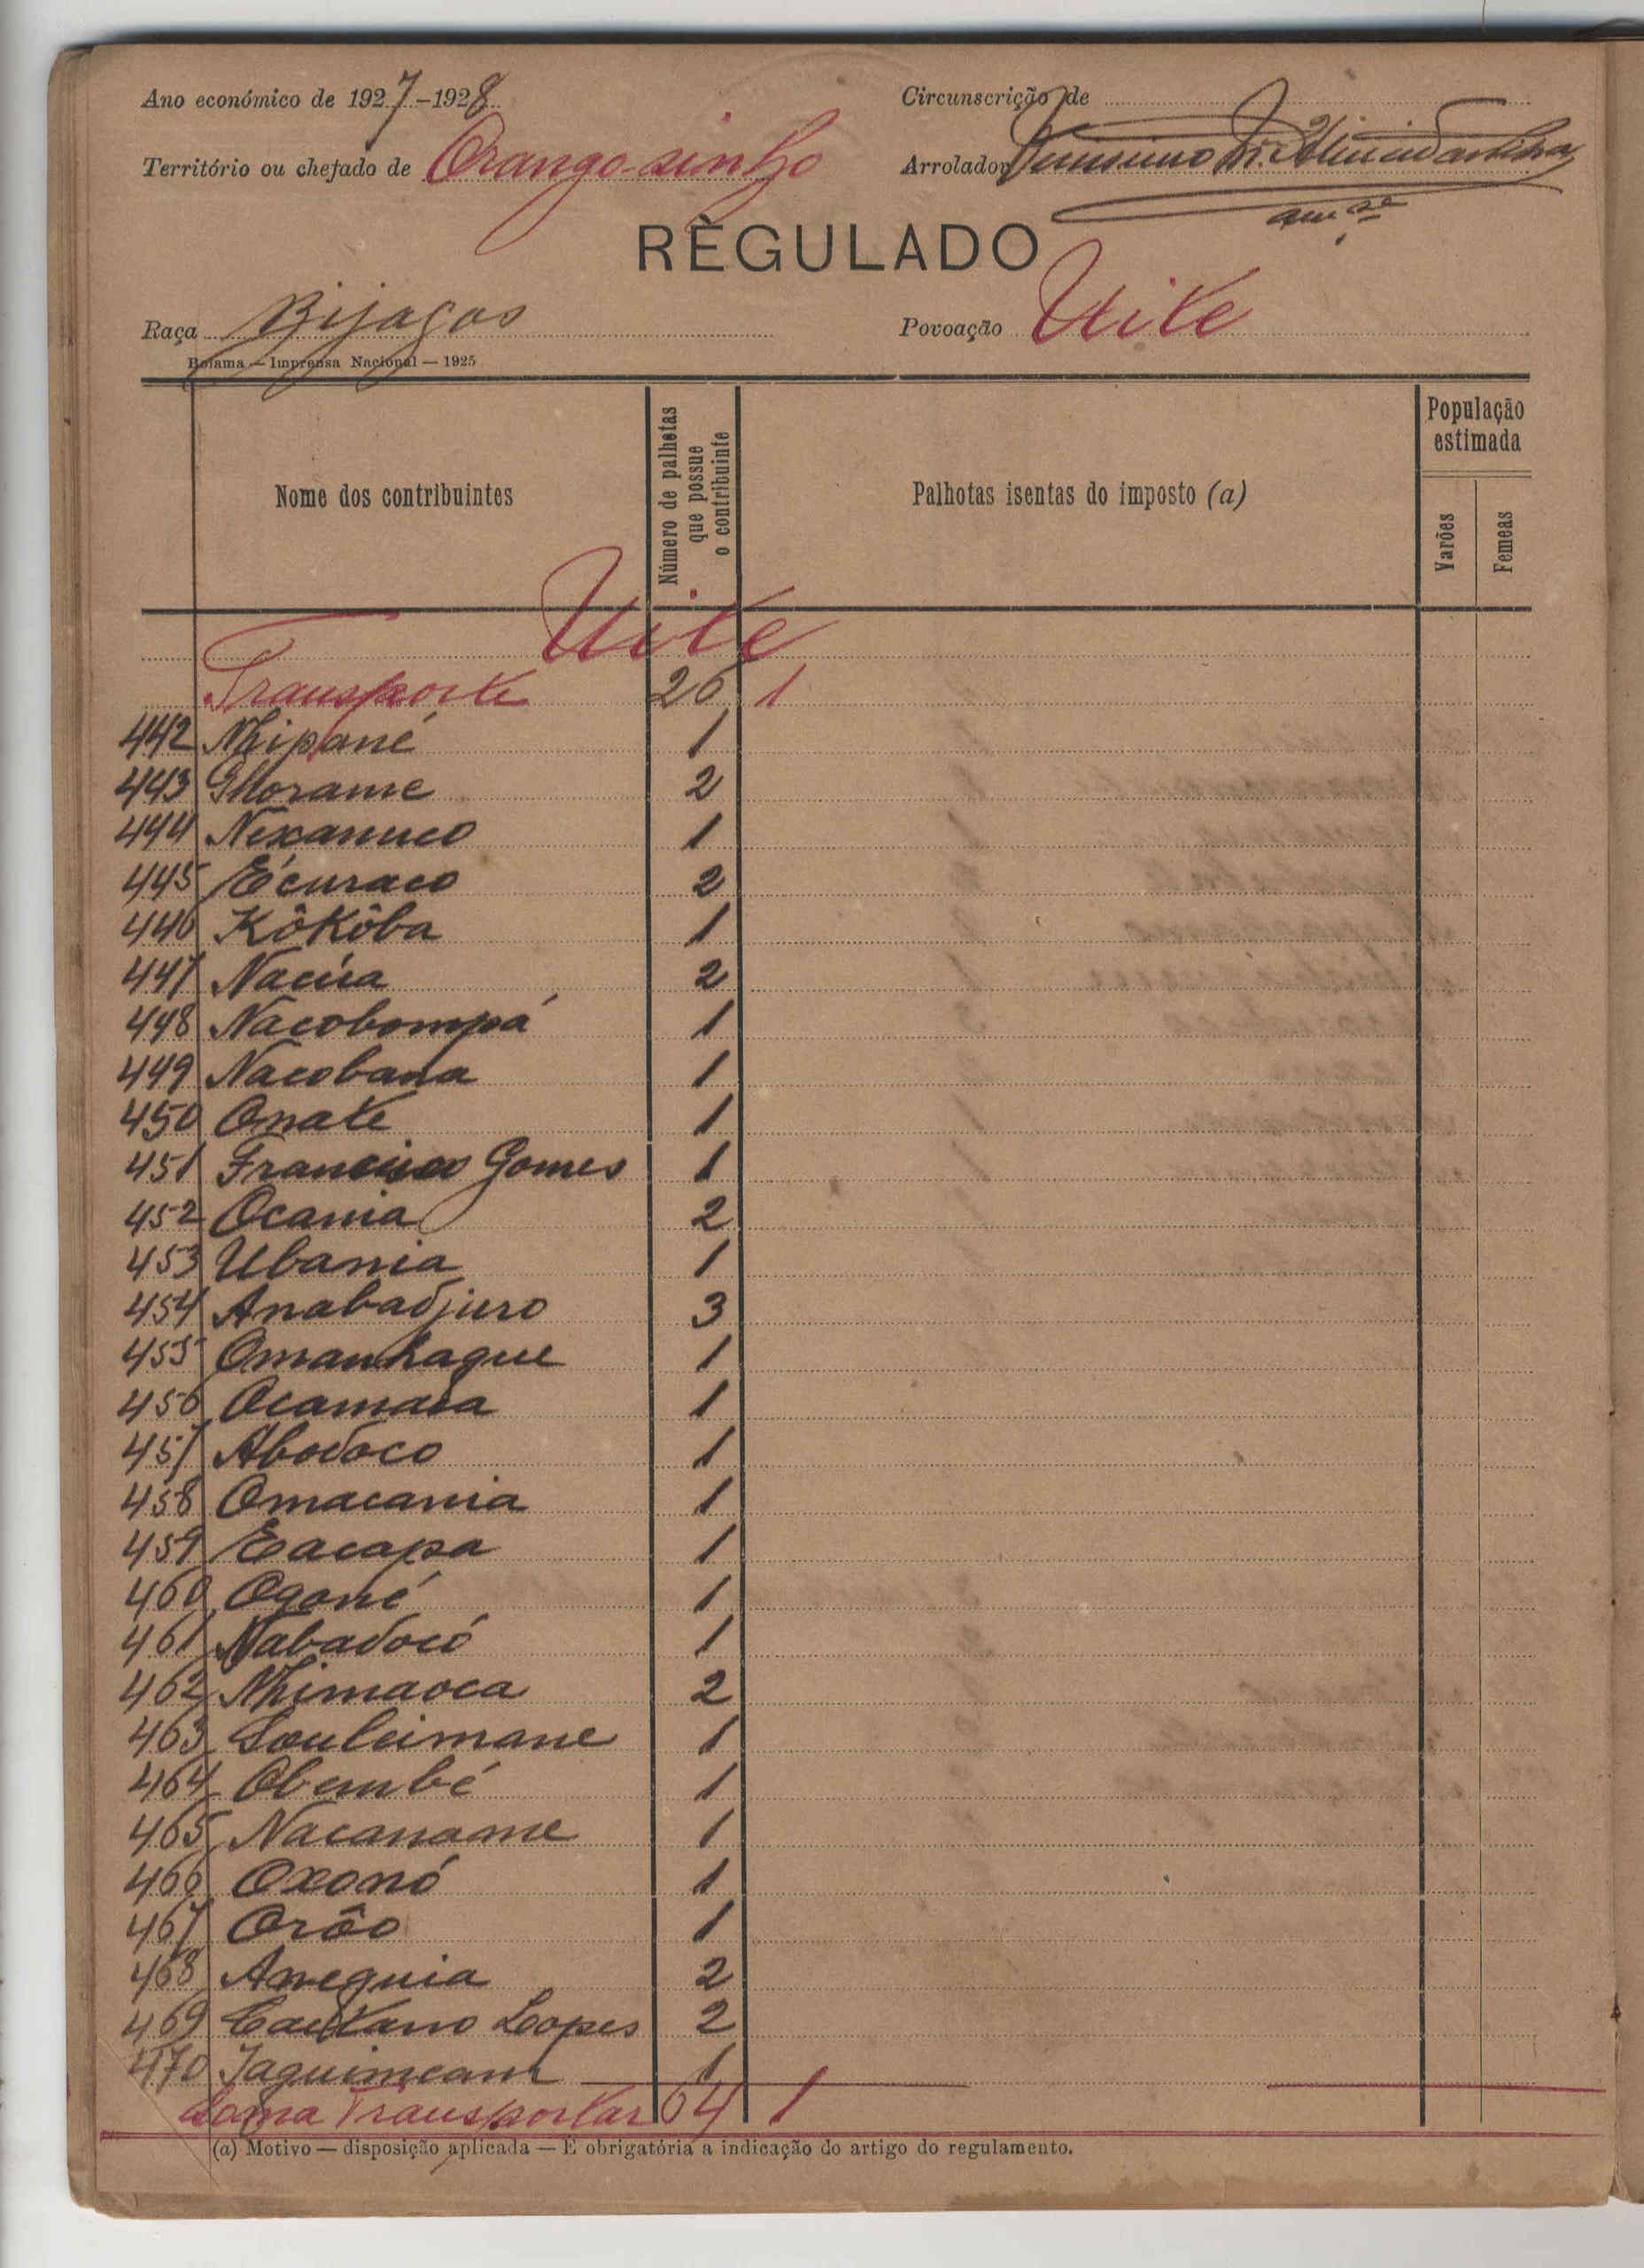 Ano económico de 1927-1928
Circunscrição de
Território ou chefado de Orango-sinho
Arrolador
REGULADO
Raça Bijagos
Povoação Uite
Bolama — Imprensa Nacional — 1925
Nome dos contribuintes
Número de palhotas que possue o contribuinte
Palhotas isentas do imposto (a)
População estimada
Varões
Femeas
Uite
Transporte 26 1
442 Nhipané 1
443 Morame 2
444 Nexanuco 1
445 Écuraco 2
446 Kôkôba 1
447 Nacúa 2
448 Nacobompá 1
449 Nacobana 1
450 Onate 1
451 Francisco Gomes 1
452 Ocania 2
453 Ubania 1
454 Anabadjuro 3
455 Omanhaque 1
456 Ocamaia 1
457 Abodoco 1
458 Omacania 1
459 Eacapa 1
460 Ogoné 1
461 Nabadocó 1
462 Nhimaoca 2
463 Souleimane 1
464 Obembé 1
465 Nacanaame 1
466 Oxonó 1
467 Orôo 1
468 Aneguia 2
469 Caetano Lopes 2
470 Jaguimeam 1
Soma Transportar 64 1
(a) Motivo — disposição aplicada — É obrigatória a indicação do artigo do regulamento.